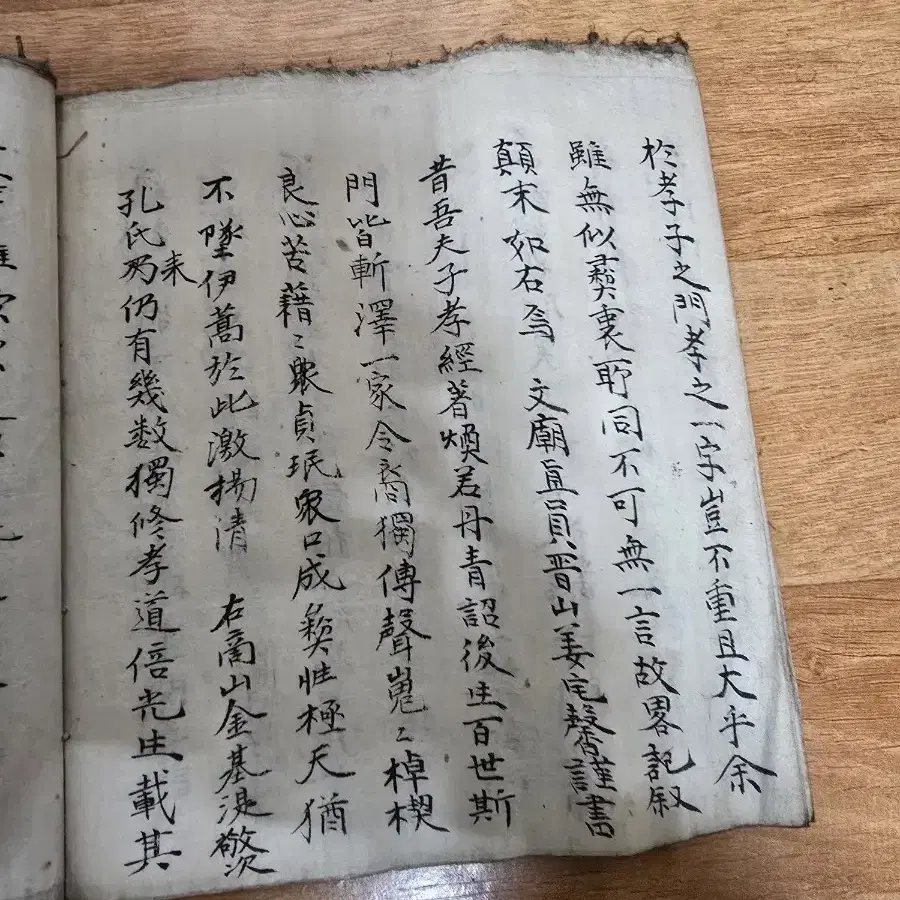 於孝子之門孝之一字豈不重且大乎余
雖無似彛裏所同不可無一言故畧記叙
顛末如右焉 文廟直員晋山姜宅馨謹書
昔吾夫子孝經著煥若丹青詔後生百世斯
門皆斬澤一家令裔獨傳聲嵬〻棹楔
良心苦藉〻眾貞珉眾口成彛性極天猶
不墜伊蒿於此激揚清 右商山金基湜敬次
孔氏乃耒仍有幾数獨修孝道倍光生載其